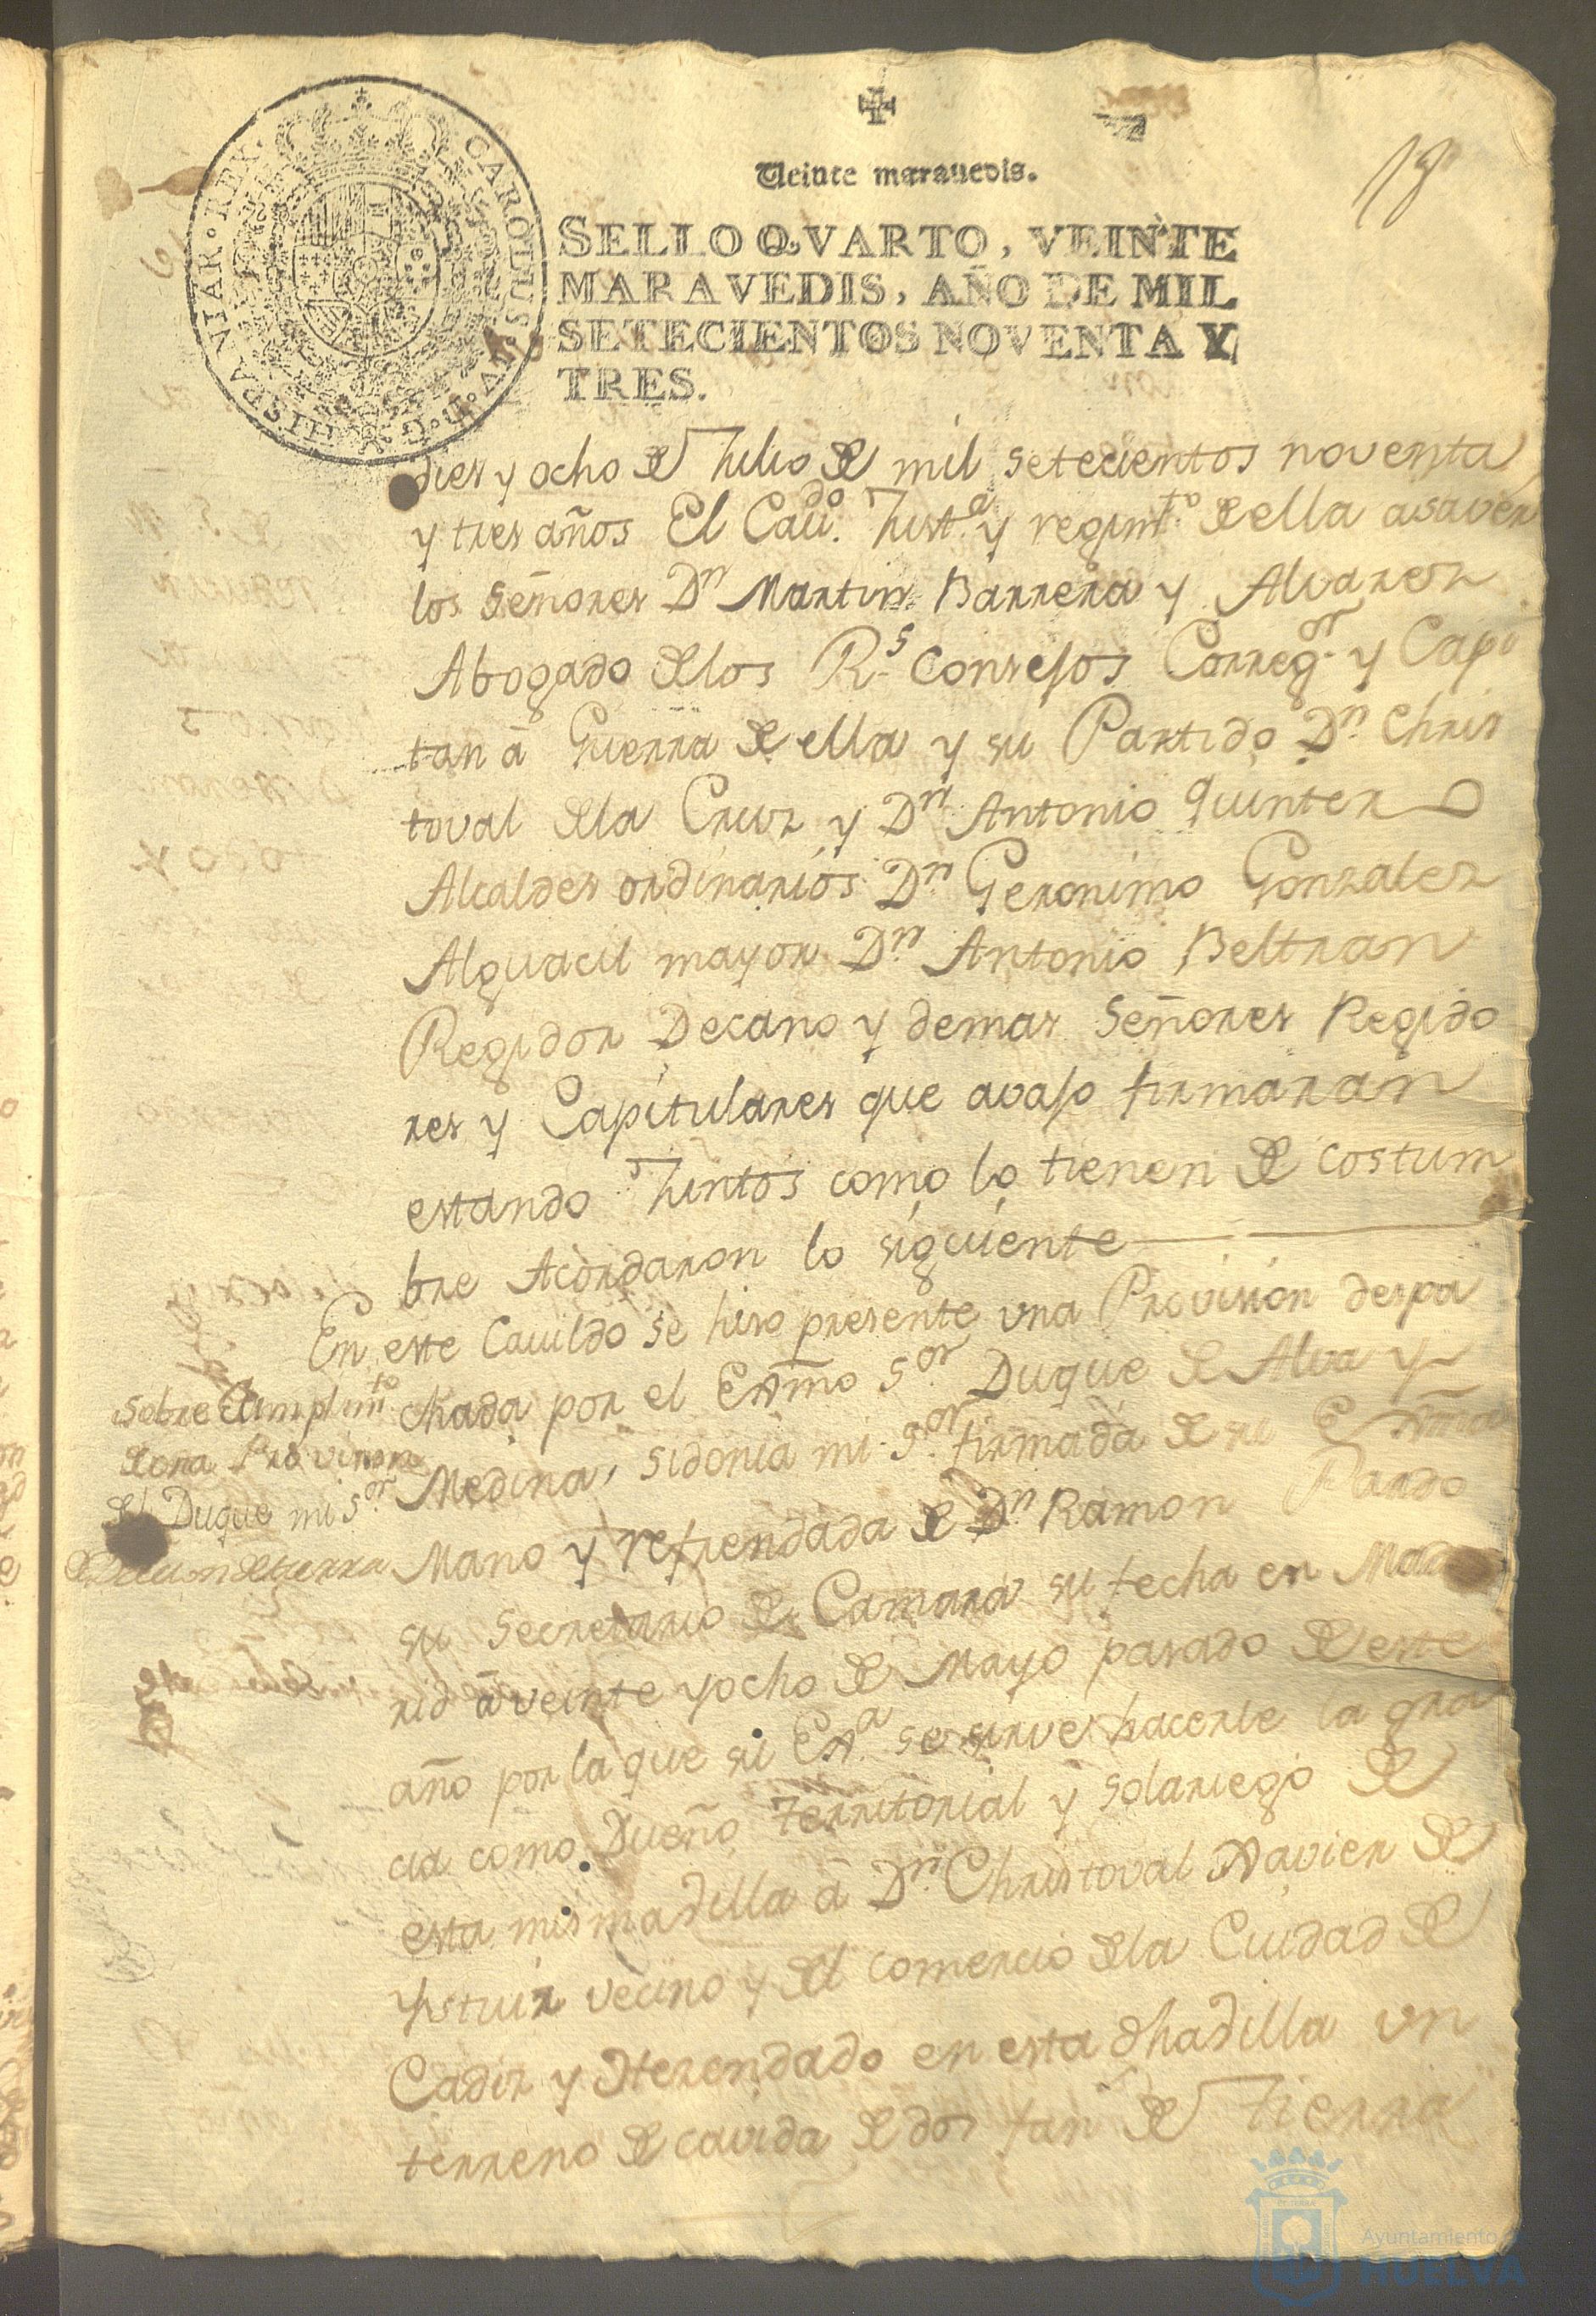 Veinte maravedis.
18
SELLO QVARTO, VEINTE
MARAVEDIS, AÑO DE MIL
SETECIENTOS NOVENTA Y
TRES.
CAROLUS IV D G HISPANIAR REX
dies y ocho de Julio de mil setecientos noventa
y tres años El Cavdo. Justa. y regimto. de ella asaver
los Señores Dn Martin Barrera y Alvarez
Abogado de los Rs. Consejos Corregor. y Capi
tan á Guerra de ella y su Partido Dn Chris
toval de la Cruz y Dn Antonio Quintero
Alcaldes ordinarios Dn Geronimo Gonzalez
Alguacil mayor Dn Antonio Beltran
Regidor Decano y demas Señores Regido
res y Capitulares que avajo firmaran
estando Juntos como lo tienen de costum
bre Acordaron lo siguiente
En este Cavildo se hiso presente una Provision despa
chada por el Exmo Sor. Duque de Alva y
Medina, sidonia mi Sor. firmada de su Exma
Mano y refrendada de Dn Ramon Pardo
su Secretario de Camara su fecha en Mad
rid á veinte y ocho de Mayo pasado de este
año por la que su Exa. se sirve hacerle la gra
cia como Dueño Territorial y Solariego de
esta misma Villa á Dn Christoval Xavier de
Ysturiz vecino y del comercio de la Ciudad de
Cadiz y Herendado en esta dha Villa un
terreno de cavida de dos fan de Tierra
sobre Cumplimto
de una Provision
del Duque mi Sor.
de tierra
Ayuntamiento de
HUELVA